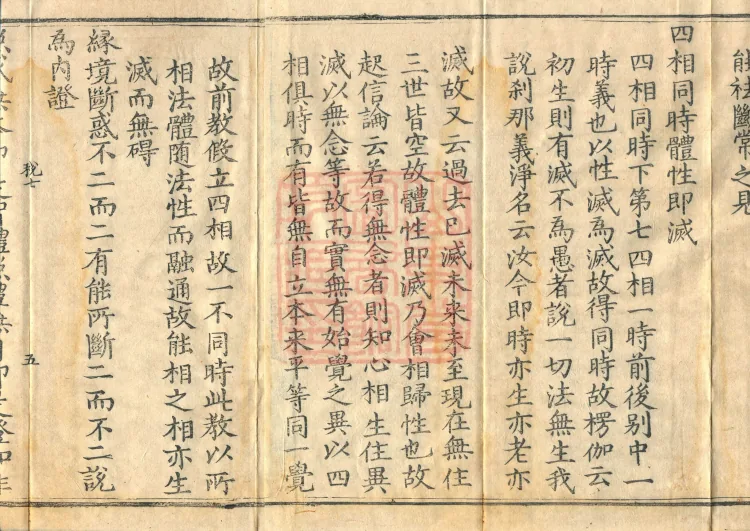 能祛斷常之見
四相同時體性即滅
四相同時下第七四相一時前後别中一
時義也以性滅為滅故得同時故楞伽云
初生則有滅不為愚者說一切法無生我
說刹那義淨名云汝今即時亦生亦老亦
滅故又云過去已滅未來未至現在無住
三世皆空故體性即滅乃會相歸性也故
起信論云若得無念者則知心相生住異
滅以無念等故而實無有始覺之異以四
相俱時而有皆無自立本来平等同一覺
故前教假立四相故一不同時此教以所
相法體随法性而融通故能相之相亦生
滅而無碍
縁境斷惑不二而二有能所斷二而不二說
為內證
税七 五